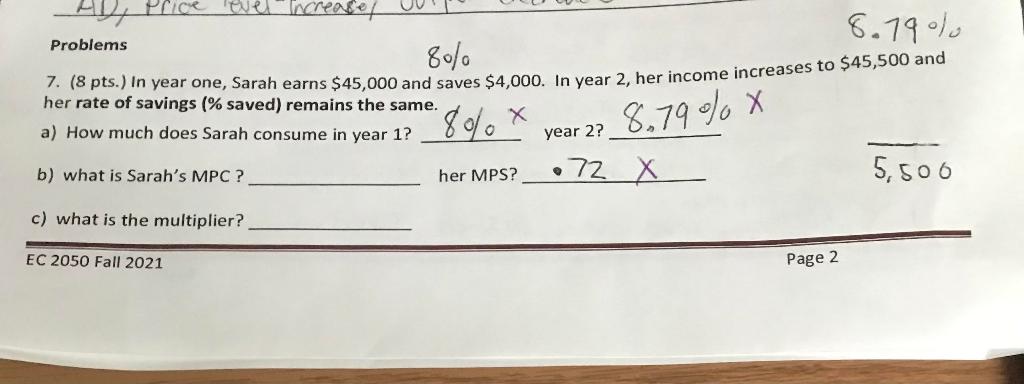 AD, Price level Increase,
8.79%
Problems
8%
7. (8 pts.) In year one, Sarah earns $45,000 and saves $4,000. In year 2, her income increases to $45,500 and
her rate of savings (% saved) remains the same.
a) How much does Sarah consume in year 1? 8% x year 2? 8.79% x
b) what is Sarah's MPC ? her MPS? .72 X
5,500
c) what is the multiplier?
EC 2050 Fall 2021
Page 2